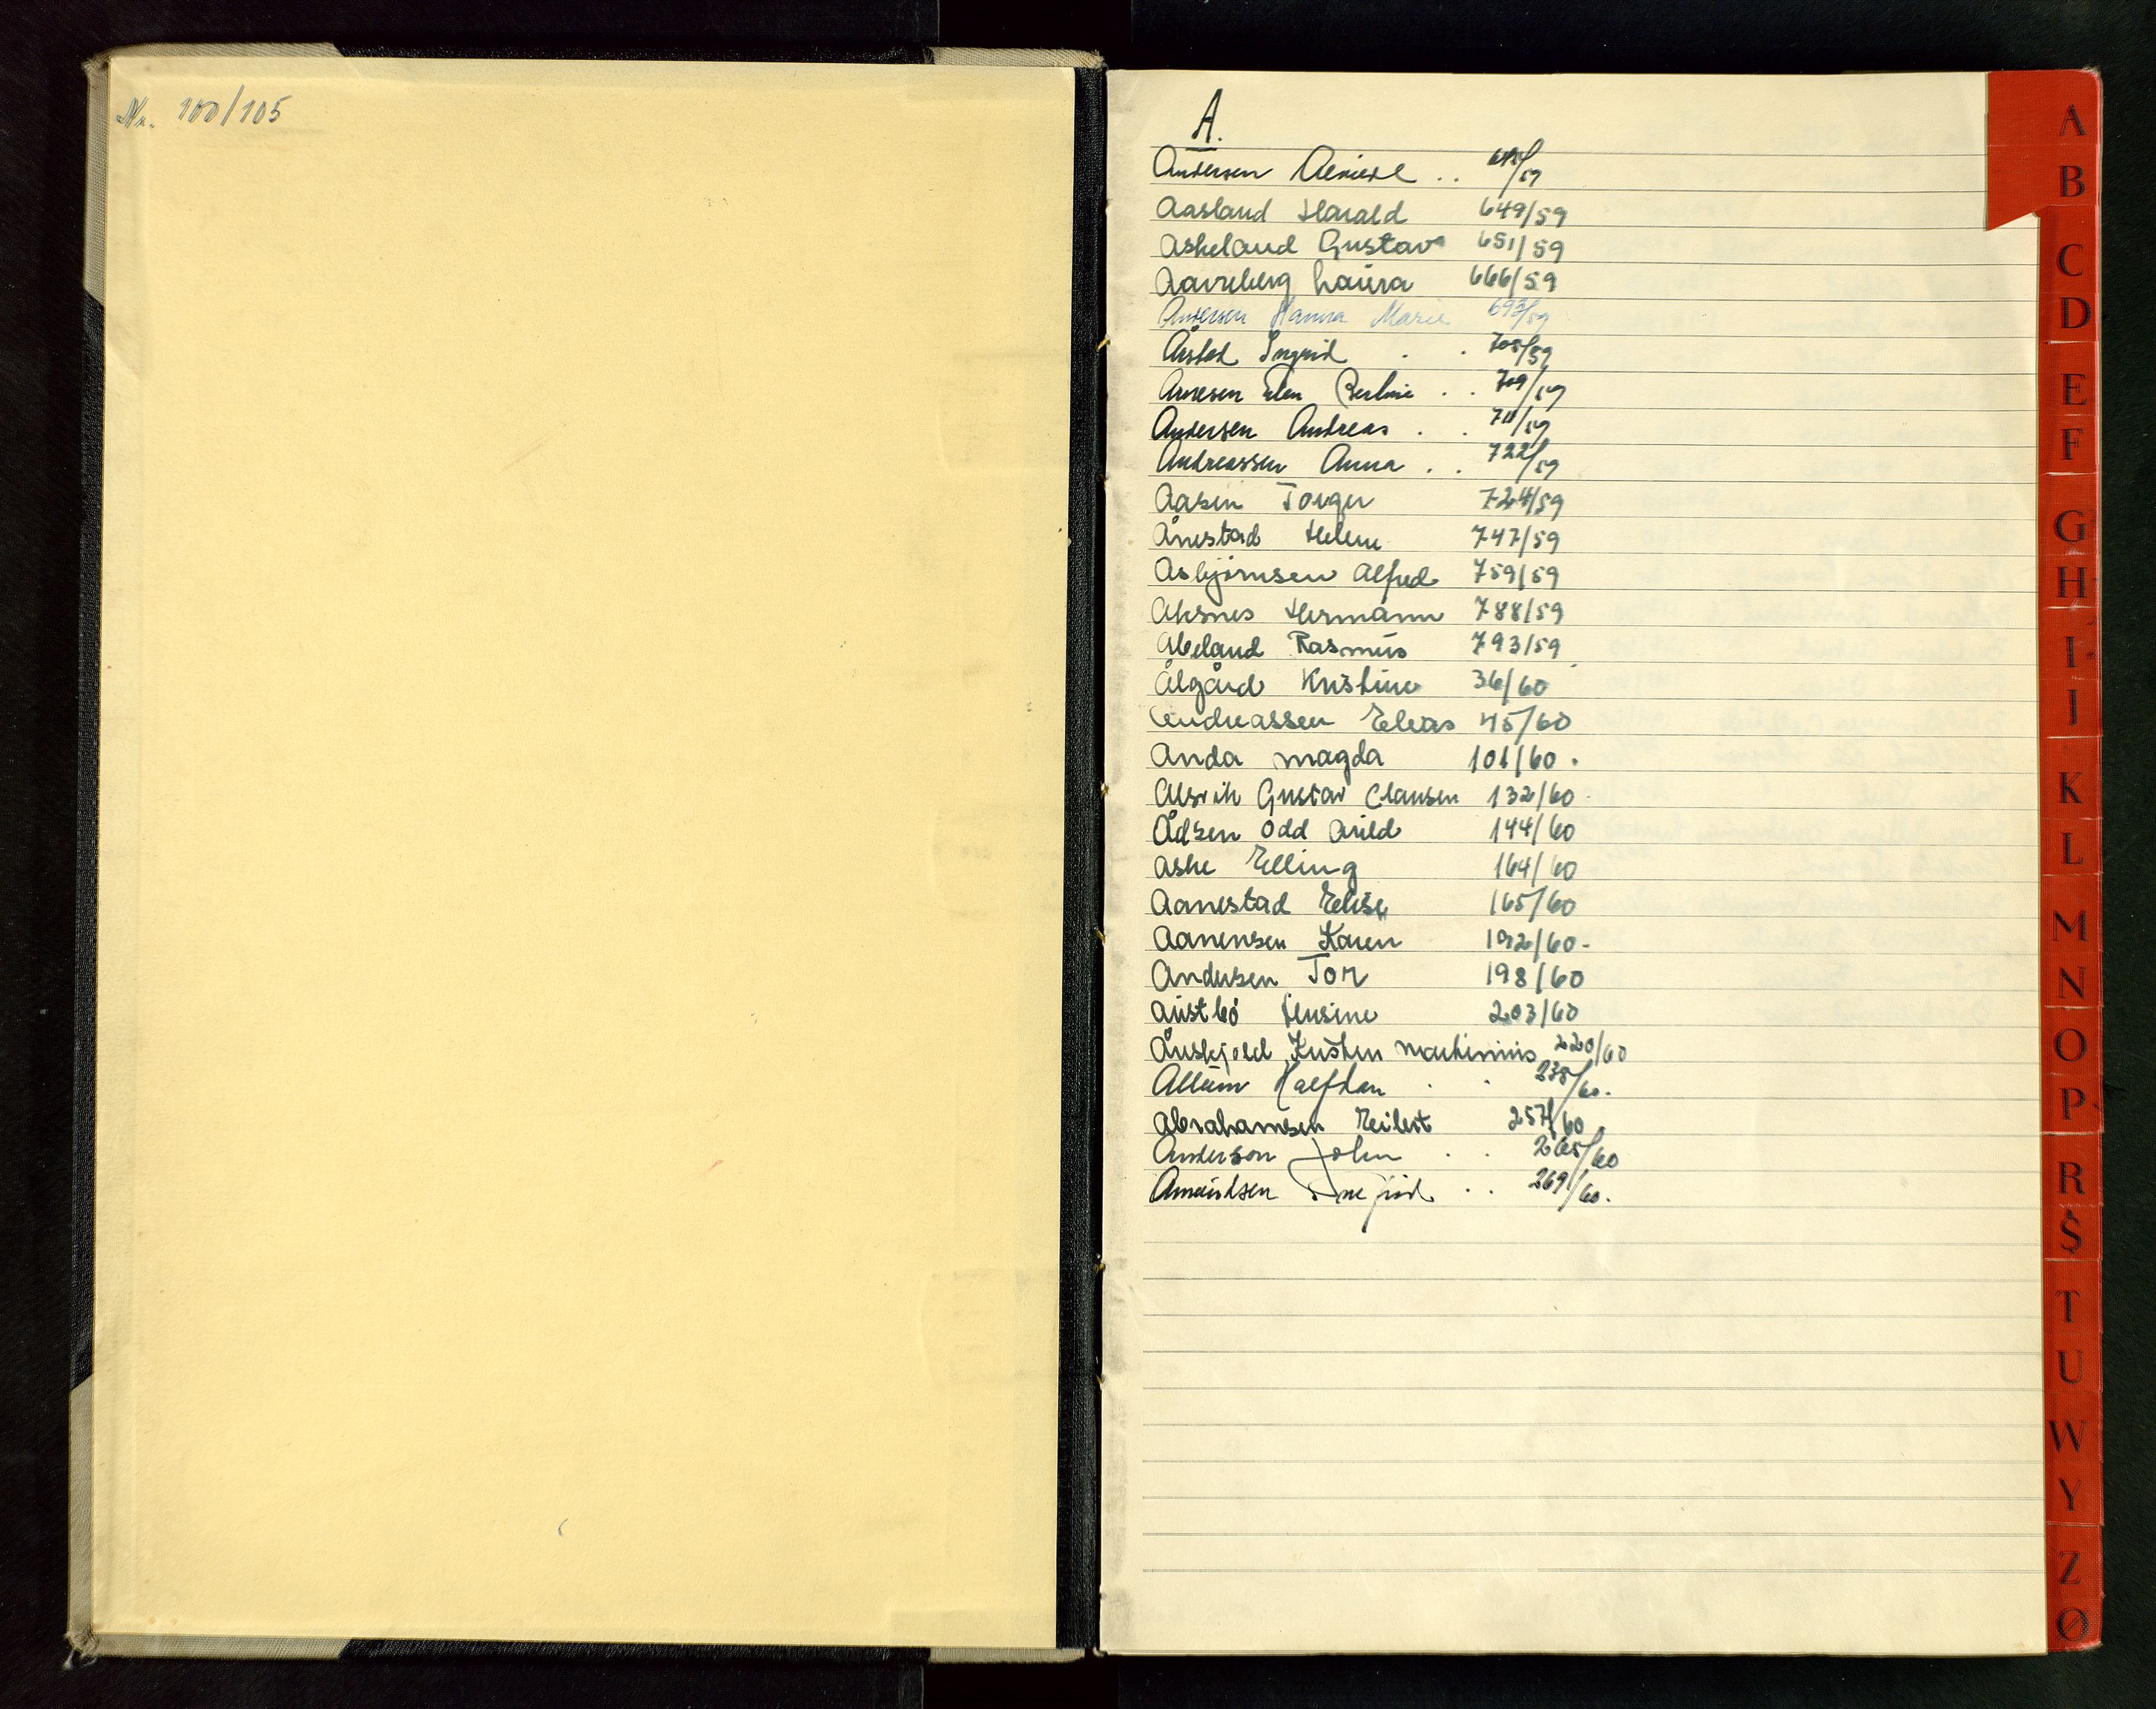 Nr. 100/105
A.
Andersen
Aasland Harald 649/59
Askeland Gustav 651/59
Aavreberg Laura 666/59
Andersen Hanna Marie 693/59
Årstad Ingrid . . 705/59
Arnesen Elen Berline . . 709/59
Andersen Andreas . . 711/59
Andreassen Anna . . 722/59
Aasen Torger 724/59
Ånestad Helene 747/59
Asbjørnsen Alfred 759/59
Aksnes Hermann 788/59
Abeland Rasmus 793/59
Ålgård Kristine 36/60
Andreassen Elias 45/60
Anda Magda 101/60.
Alsvik Gustav Clausen 132/60
Ådsen Odd Arild 144/60
Aske Elling 164/60
Aanestad Elise 165/60
Aanensen Karen 192/60-
Andersen Tor 198/60
Austbø 203/60
Årskjold Kristen Martinius 220/60
Allum Halfdan . . 238/60.
Abrahamsen Reilert 257/60
Anderson John . . 265/60
Amundsen . . 269/60.
A
B
C
D
E
F
G
H
I
I
K
L
M
N
O
P
R
S
T
U
W
Y
Z
Ø